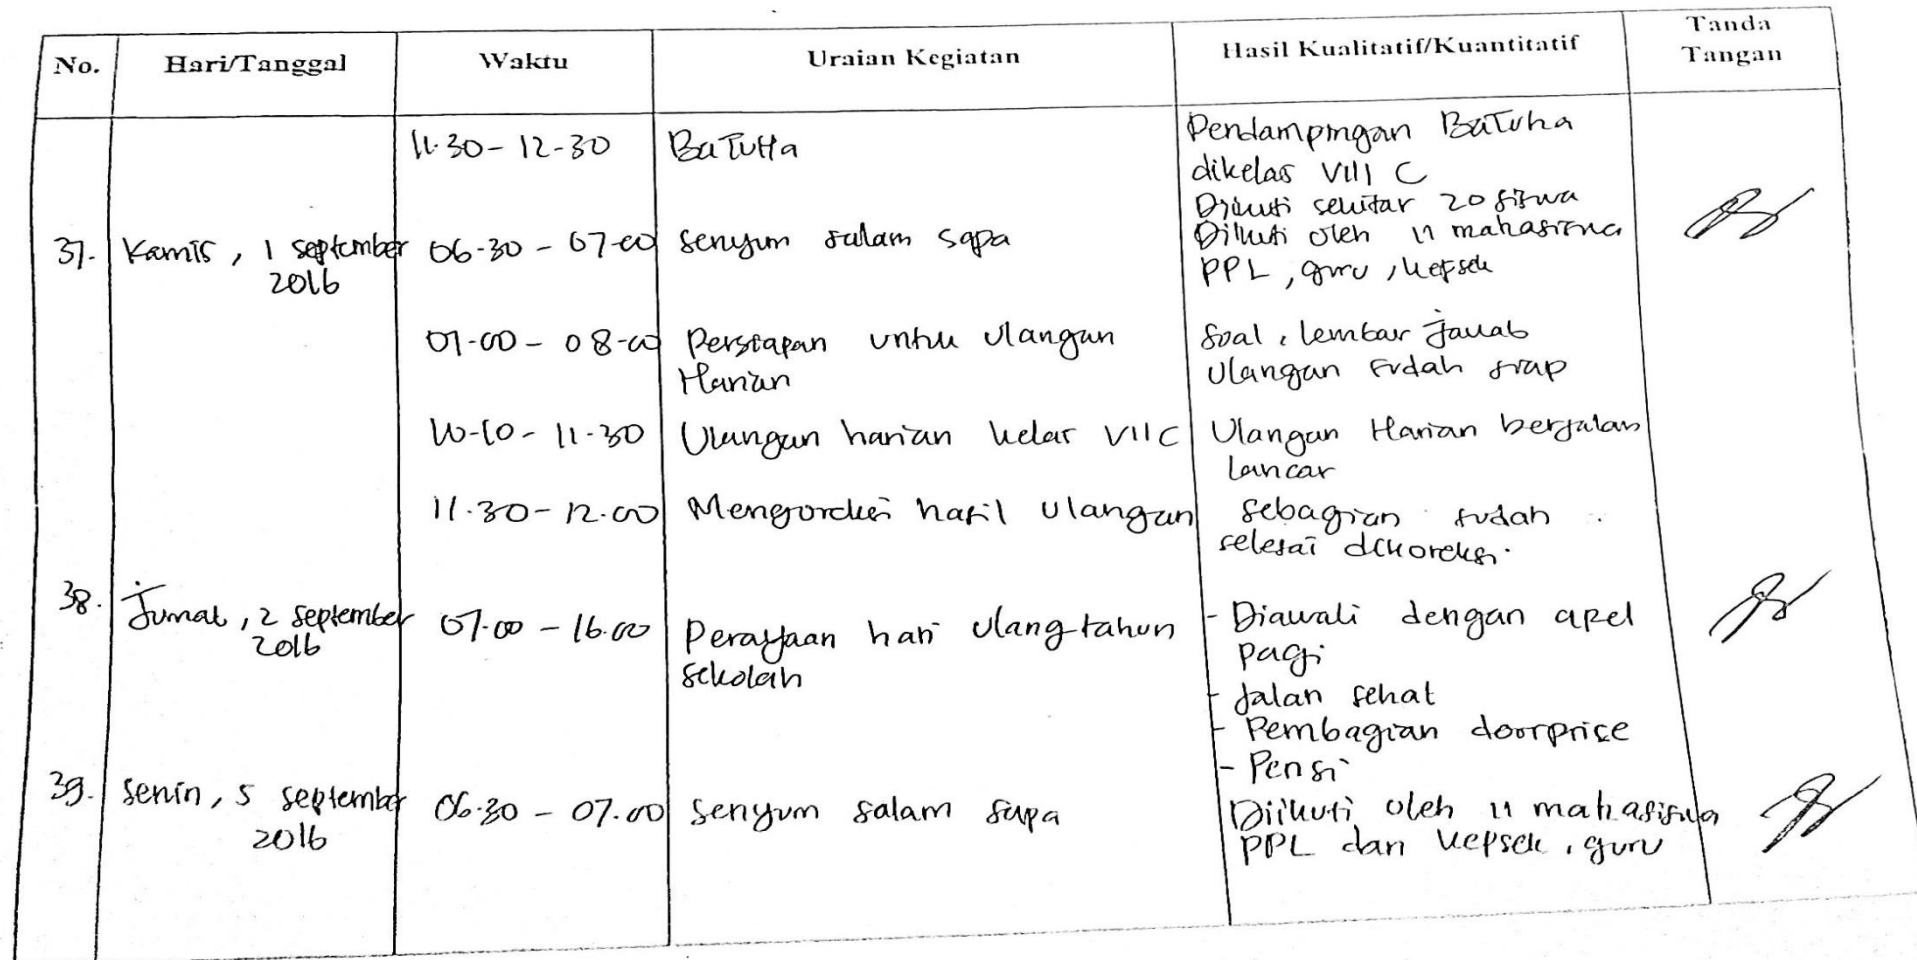 No. Hari/Tanggal Waktu Uraian Kegiatan Hasil Kualitatif/Kuantitatif Tanda Tangan
11.30 - 12-30 BaTuHa Pendampingan BaTuha
dikelas VIII C
Diikuti sekitar 20 siswa
37. Kamis, 1 september 2016 06-30 - 07-00 senyum salam sapa Diikuti oleh 11 mahasiswa
PPL, guru, kepsek
07-00 - 08-00 Persiapan untuk Ulangan Soal, lembar jawab
Harian Ulangan sudah siap
10-10 - 11-30 Ulangan harian kelas VII C Ulangan Harian berjalan
lancar
11.30 - 12.00 Mengoreksi hasil ulangan sebagian sudah
selesai dikoreksi.
38. Jumat, 2 september 2016 07.00 - 16.00 Perayaan hari ulang tahun - Diawali dengan apel
sekolah pagi
- Jalan sehat
- Pembagian doorprise
- Pensi
39. senin, 5 september 2016 06.30 - 07.00 senyum salam sapa Diikuti oleh 11 mahasiswa
PPL dan kepsek, guru